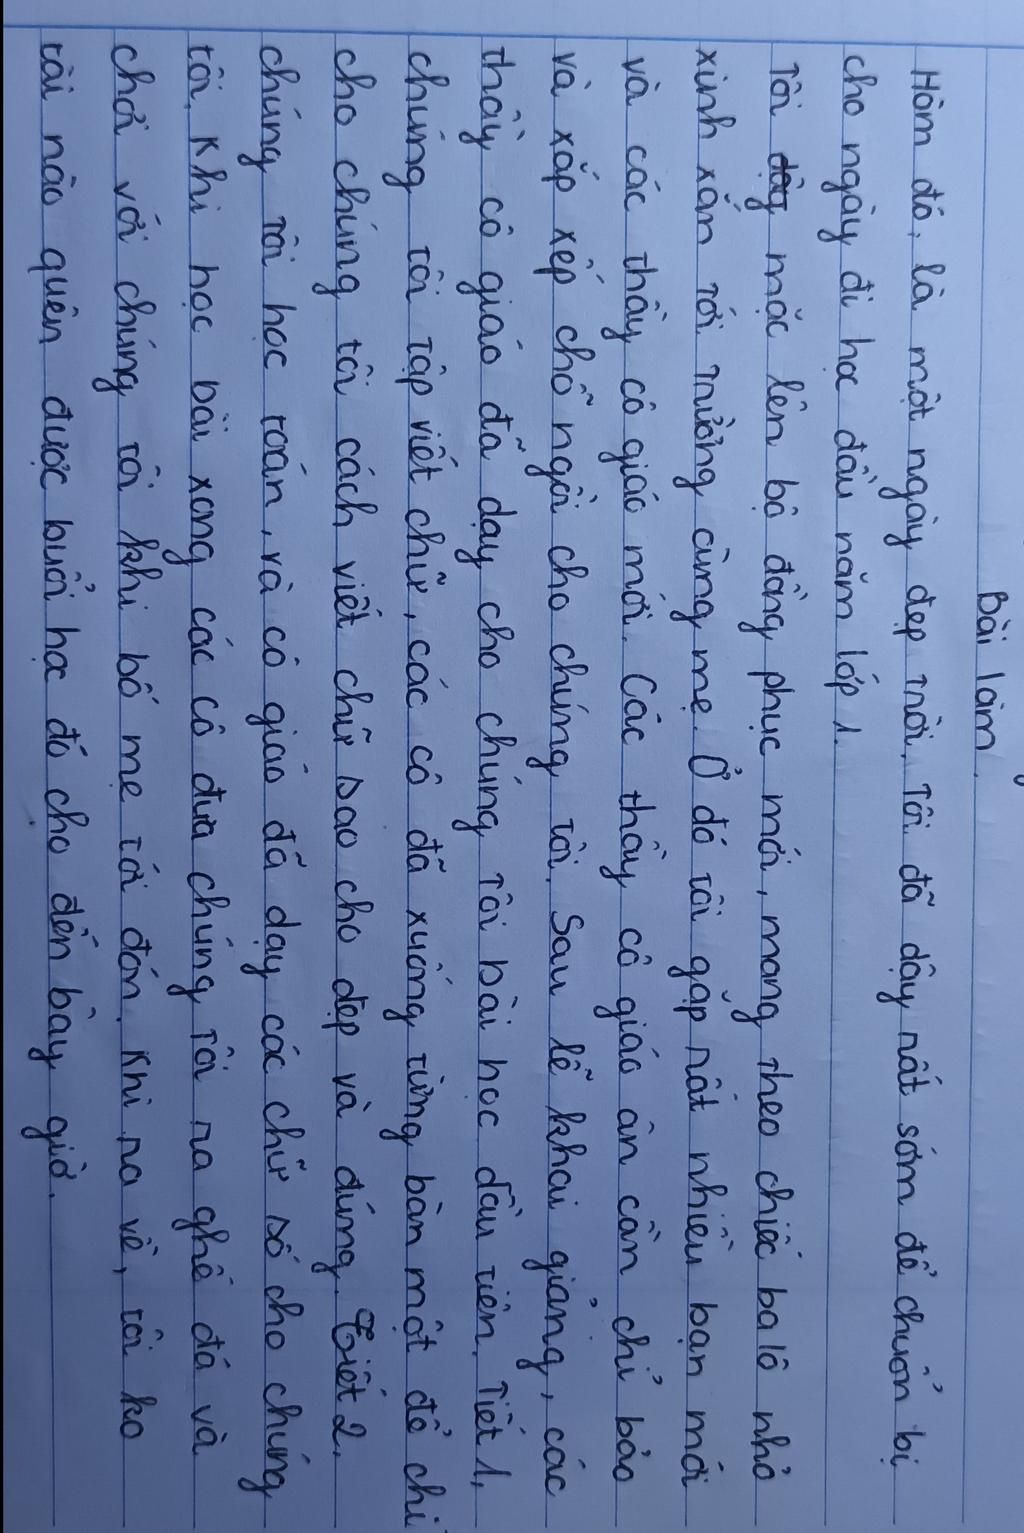 Bài làm.
Hôm đó, là một ngày đẹp trời, Tôi đã dậy rất sớm để chuẩn bị
cho ngày đi học đầu năm lớp 1.
Tôi mặc lên bộ đồng phục mới, mang theo chiếc ba lô nhỏ
xinh xắn tới trường cùng mẹ. Ở đó tôi gặp rất nhiều bạn mới
và các thầy cô giáo mới. Các thầy cô giáo ân cần chỉ bảo
và xắp xếp chỗ ngồi cho chúng tôi. Sau lễ khai giảng, các
thầy cô giáo đã dạy cho chúng tôi bài học đầu tiên. Tiết 1,
chúng tôi tập viết chữ, các cô đã xuống từng bàn một để chỉ
cho chúng tôi cách viết chữ sao cho đẹp và đúng. Tiết 2,
chúng tôi học toán, và cô giáo đã dạy các chữ số cho chúng
tôi. Khi học bài xong các cô đưa chúng tôi ra ghế đá và
chơi với chúng tôi khi bố mẹ tới đón. Khi ra về, tôi ko
tài nào quên được buổi học đó cho đến bây giờ.